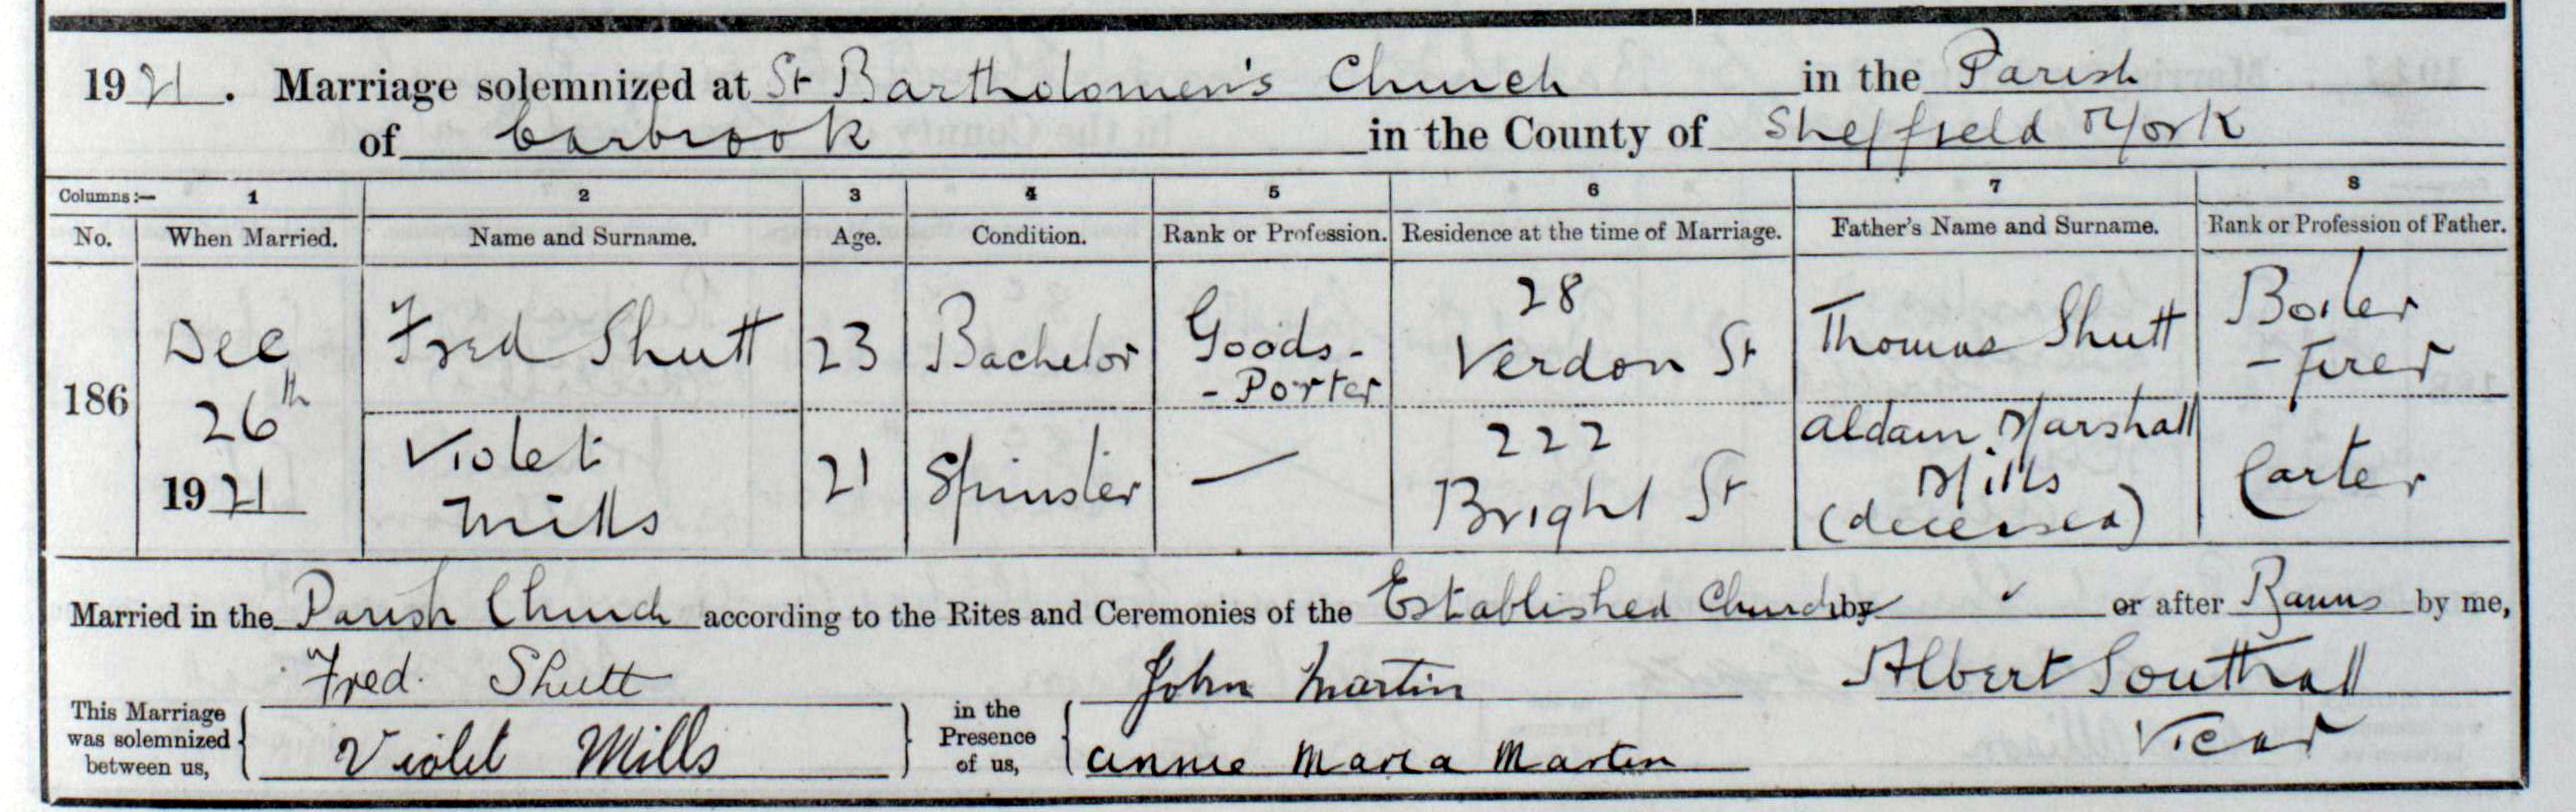 1921. Marriage solemnized at St Bartholomew's Church in the Parish
of Carbrook in the County of Sheffield York
Columns:— 1 2 3 4 5 6 7 8
No. When Married. Name and Surname. Age. Condition. Rank or Profession. Residence at the time of Marriage. Father's Name and Surname. Rank or Profession of Father.
186 Dec 26th 1921 Fred Shutt 23 Bachelor Goods - - Porter 28 Verdon St Thomas Shutt Boiler - firer
Violet Mills 21 Spinster — 222 Bright St Aldam Marshall Mills (deceased) Carter
Married in the Parish Church according to the Rites and Ceremonies of the Established Church by or after Banns by me,
This Marriage was solemnized between us, Fred. Shutt Violet Mills in the Presence of us, John Martin Annie Maria Martin Albert Southall Vicar